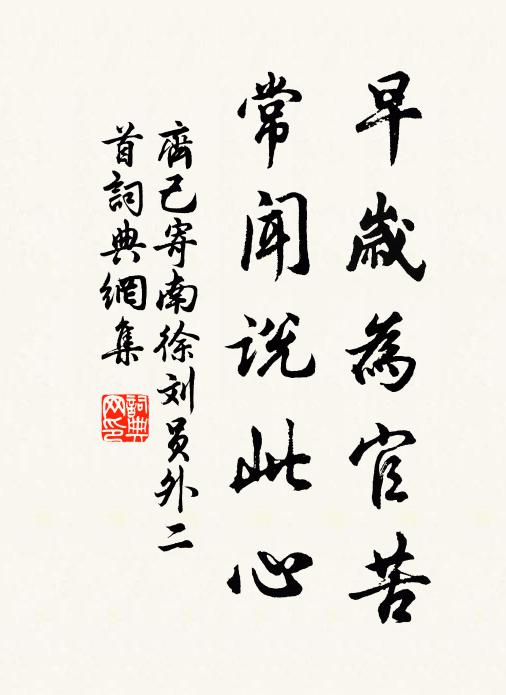 早歲為官苦
常聞說此心
齊己寄南徐刘员外二
首詞典網集
詞典网印